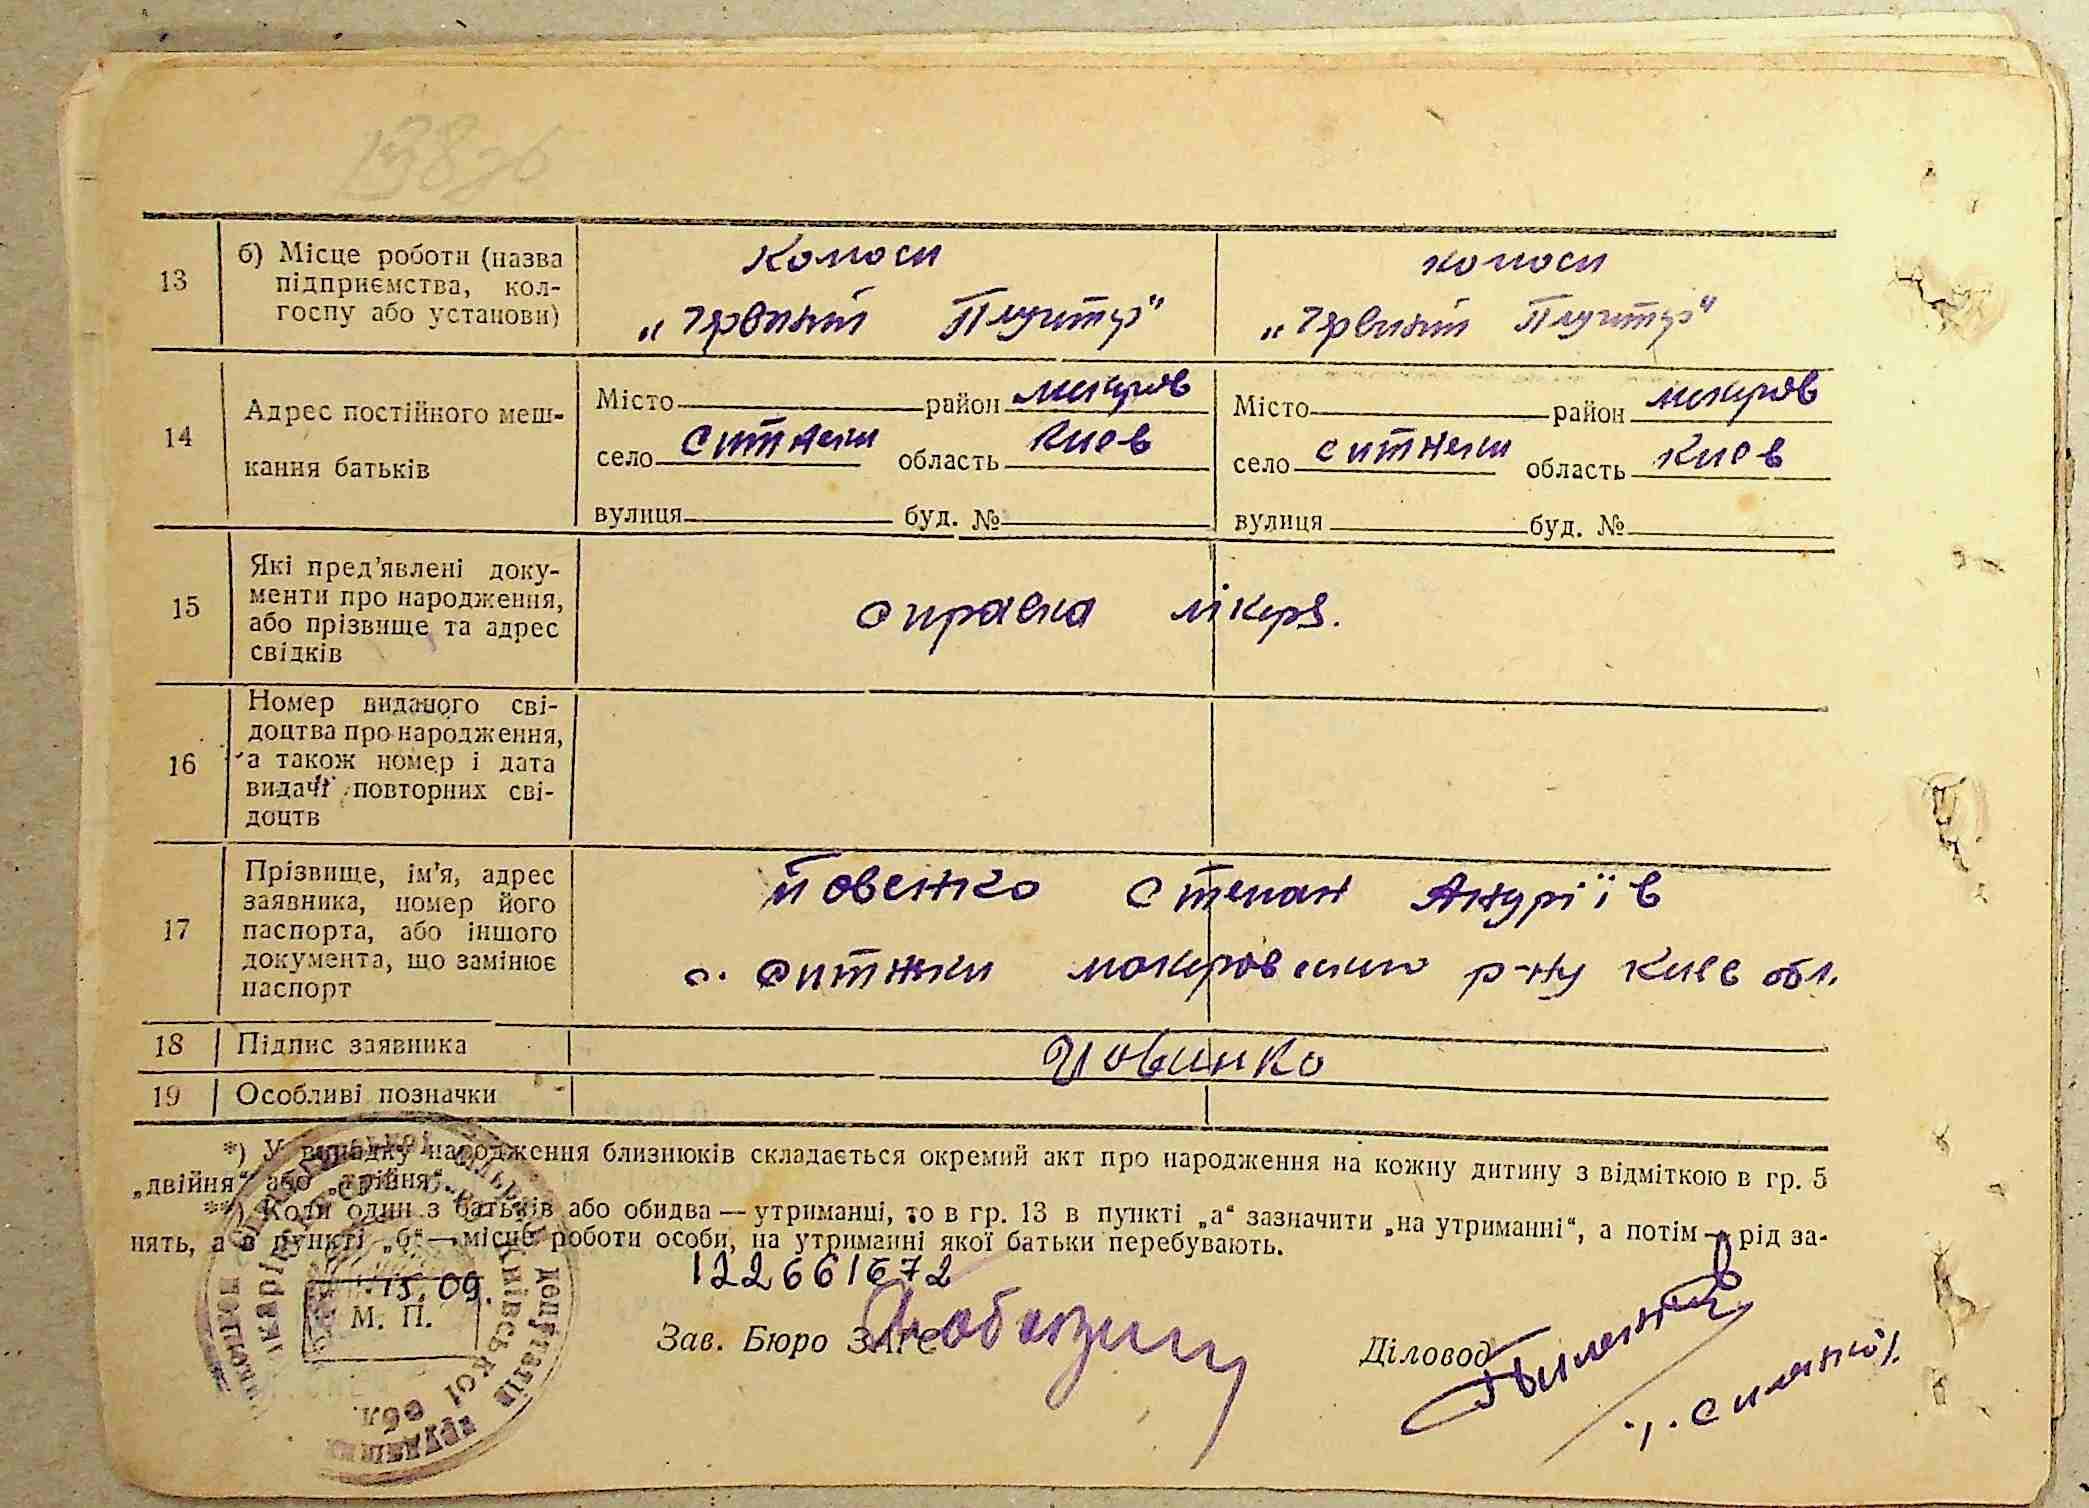 138зв
13
б) Місце роботи (назва
підприємства, кол-
госпу або установи)
Колгосп
колгосп
14
Адрес постійного меш-
кання батьків
Місто район макаров
село Ситняки область Киев
вулиця буд. №
Місто район макаров
село ситняки область Киев
вулиця буд. №
15
Які пред’явлені доку-
менти про народження,
або прізвище та адрес
свідків
справка лікаря.
16
Номер виданого сві-
доцтва про народження,
а також номер і дата
видачі повторних сві-
доцтв
17
Прізвище, ім’я, адрес
заявника, номер його
паспорта, або іншого
документа, що замінює
паспорт
Йовенко Степан Андріїв
с. Ситняки макаровського р-ну Киев обл.
18 Підпис заявника
Йовинко
19 Особливі позначки
*) У випадку народження близнюків складається окремий акт про народження на кожну дитину з відміткою в гр. 5
„двійня“ або „трійня“.
**) Коли один з батьків або обидва — утриманці, то в гр. 13 в пункті „а“ зазначити „на утриманні“, а потім — рід за-
нять, а в пункті „б“ — місце роботи особи, на утриманні якої батьки перебувають.
122661672
15.09.
М. П.
Зав. Бюро ЗАГС
Діловод
депутатів трудящих
Київської обл.